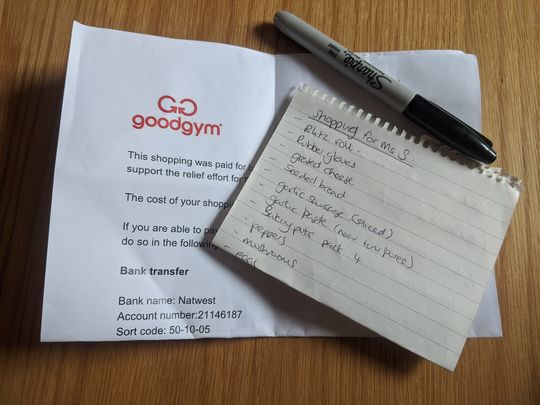 goodgym
This shopping was paid for b
support the relief effort for
The cost of your shoppi
If you are able to pa
do so in the following
Bank transfer
Bank name: Natwest
Account number:21146187
Sort code: 50-10-05
Sharpie
FINE POINT
Shopping for Ms S.
- Blitz roll.
- Rubber gloves
- grated cheese
- Seeded bread
- garlic sausage (sliced)
- garlic paste (near tom puree)
- baking pots pack 4
- peppers
- mushrooms
- eggs